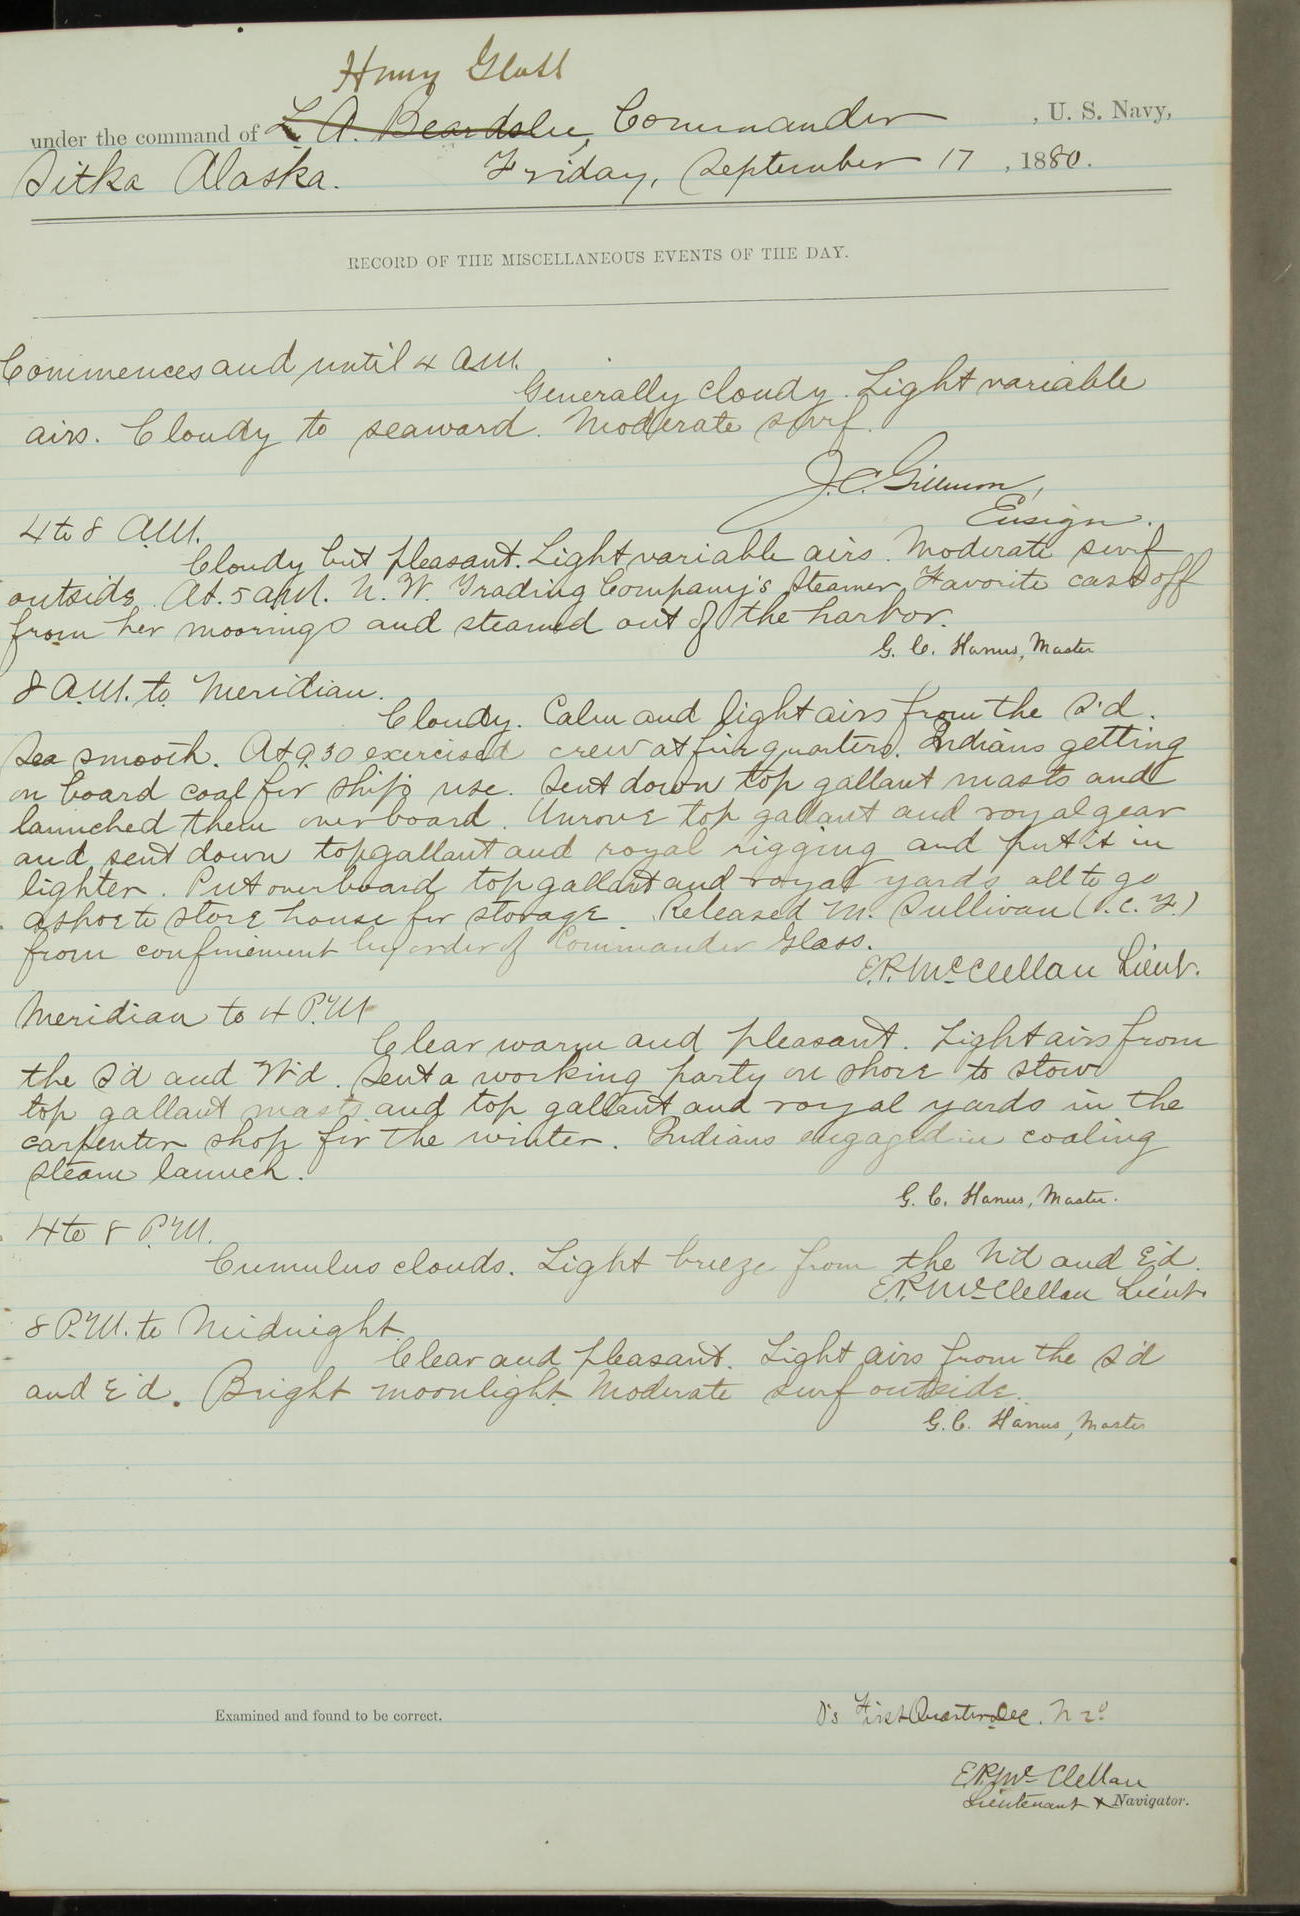 Henry Glass
under the command of L. A. Beardslee, Commander, U. S. Navy,
Sitka Alaska. Friday, September 17, 1880.
RECORD OF THE MISCELLANEOUS EVENTS OF THE DAY.
Commences and until 4 A.M.
Generally cloudy. Light variable
airs. Cloudy to seaward. Moderate surf.
J. C. Gillmore,
Ensign.
4 to 8 A.M.
Cloudy but pleasant. Light variable airs. Moderate surf
outside. At 5 a.m. N. W. Trading Company's Steamer Favorite cast off
from her moorings and steamed out of the harbor.
G. C. Hanus, Master
8 A.M. to Meridian.
Cloudy. Calm and light airs from the S'd.
Sea smooth. At 9.30 exercised crew at fire quarters. Indians getting
on board coal for ship's use. Sent down top gallant masts and
launched them overboard. Unrove top gallant and royal gear
and sent down topgallant and royal rigging and put it in
lighter. Put overboard top gallant and royal yards all to go
ashore to store house for storage. Released M. Sullivan
from confinement by order of Commander Glass.
E.P. McClellan Lieut.
Meridian to 4 P.M.
Clear warm and pleasant. Light airs from
the S'd and W'd. Sent a working party on shore to stow
top gallant masts and top gallant and royal yards in the
carpenter shop for the winter. Indians engaged in coaling
steam launch.
G. C. Hanus, Master.
4 to 8 P.M.
Cumulus clouds. Light breeze from the N'd and E'd.
E.P. McClellan Lieut.
8 P.M. to Midnight.
Clear and pleasant. Light airs from the S'd
and E'd. Bright moonlight. Moderate surf outside.
G. C. Hanus, Master
Examined and found to be correct.
First Quarter Dec. N
E.P. McClellan
Lieutenant & Navigator.